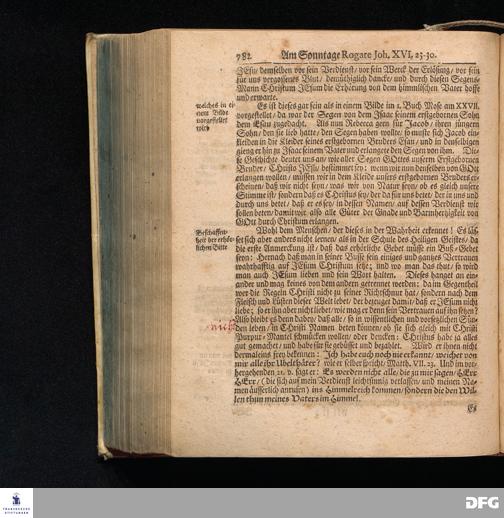 782 Am Sonntage Rogate Joh. XVI, 23-30.
JEsu demselben vor sein Verdienst/ vor sein Werck der Erlösung/ vor sein
für uns vergossenes Blut/ demüthiglich dancke/ und durch diesen Segens-
Mann Christum JEsum die Erhörung von dem himmlischen Vater hoffe
und erwarte.
welches in ei-
nem Bilde
vorgestellet
wird
Es ist dieses gar sein als in einem Bilde im 1. Buch Mose am XXVII.
vorgestellet/ da war der Segen von dem Isaac seinem erstgebornen Sohn
dem Esau zugedacht. Als nun Rebecca gern für Jacob/ ihren jüngern
Sohn/ den sie lieb hatte/ den Segen haben wollte/ so muste sich Jacob ein-
kleiden in die Kleider seines erstgebornen Bruders Esau/ und in denselbigen
gieng er hin zu Isaac seinem Vater und erlangete den Segen von ihm. Die-
se Geschichte deutet uns an/ wie aller Segen GOttes unserm Erstgebornen
Bruder/ Christo JEsu/ bestimmet sey: wenn wir nun denselben von GOtt
erlangen wollen/ müssen wir in dem Kleide unsers erstgebornen Bruders er-
scheinen/ daß wir nicht seyn/ was wir von Natur seyn/ ob es gleich unsere
Stimme ist/ sondern daß es Christus sey/ der da für uns betet/ der in uns und
durch uns betet/ daß er es sey/ in dessen Namen/ auf dessen Verdienst wir
sollen beten/ damit wir also alle Güter der Gnade und Barmhertzigkeit von
GOtt durch Christum erlangen.
Beschaffen-
heit der erhör-
lichen Bitte
Wohl dem Menschen/ der dieses in der Wahrheit erkennet! Es läs-
set sich aber anders nicht lernen/ als in der Schule des Heiligen Geistes/ da
die erste Anmerckung ist/ daß das erhörliche Gebet müsse ein Buß-Gebet
seyn: Hernach daß man in seiner Busse sein einiges und gantzes Vertrauen
wahrhafftig auf JEsum Christum setze; und wo man das thut/ so wird
man auch JEsum lieben und sein Wort halten. Dieses hanget an ein-
ander und mag keines von dem andern getrennet werden: da im Gegentheil
wer die Regeln Christi nicht zu seiner Richtschnur hat/ sondern nach dem
Fleisch und Lüsten dieser Welt lebet/ der bezeuget damit/ daß er JEsum nicht
liebe; so er ihn aber nicht liebet/ wie mag er denn sein Vertrauen auf ihn setzen?
Also bleibt es denn dabey/ daß alle/ so in wissentlichen und vorsetzlichen Sün-
nicht
den leben/ in Christi Namen beten können/ ob sie sich gleich mit Christi
Purpur-Mantel schmücken wollen/ oder dencken: Christus habe ja alles
gut gemachet/ und habs für sie gebüsset und bezahlet. Wird er ihnen nicht
dermaleins frey bekennen: Ich habe euch noch nie erkannt/ weichet von
mir alle ihr Übelthäter? wie er selber spricht/ Matth. VII. 23. Und im vor-
hergehenden 21. v. sagt er: Es werden nicht alle/ die zu mir sagen/ HErr
HErr/ (die sich auf mein Verdienst leichtsinnig verlassen/ und meinen Na-
men äusserlich anrufen) ins Himmelreich kommen/ sondern die den Wil-
len thun meines Vaters im Himmel.
Es
FRANCKESCHE
STIFTUNGEN
DFG